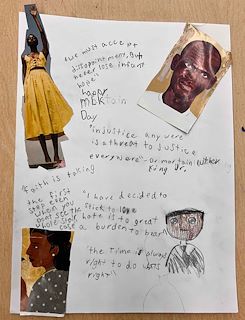 "we must accept
disappointment, But
never lose infant
hope"
happy
Day
"injustice any were
is a threat to justice
everywere"
King Jr.
"Faith is taking
the first
step even
when you
dont see the
whole stair
case
"I have decided to
stick to love
hate is to great
a burden to bear"
"the time is always
right to do whats
right"